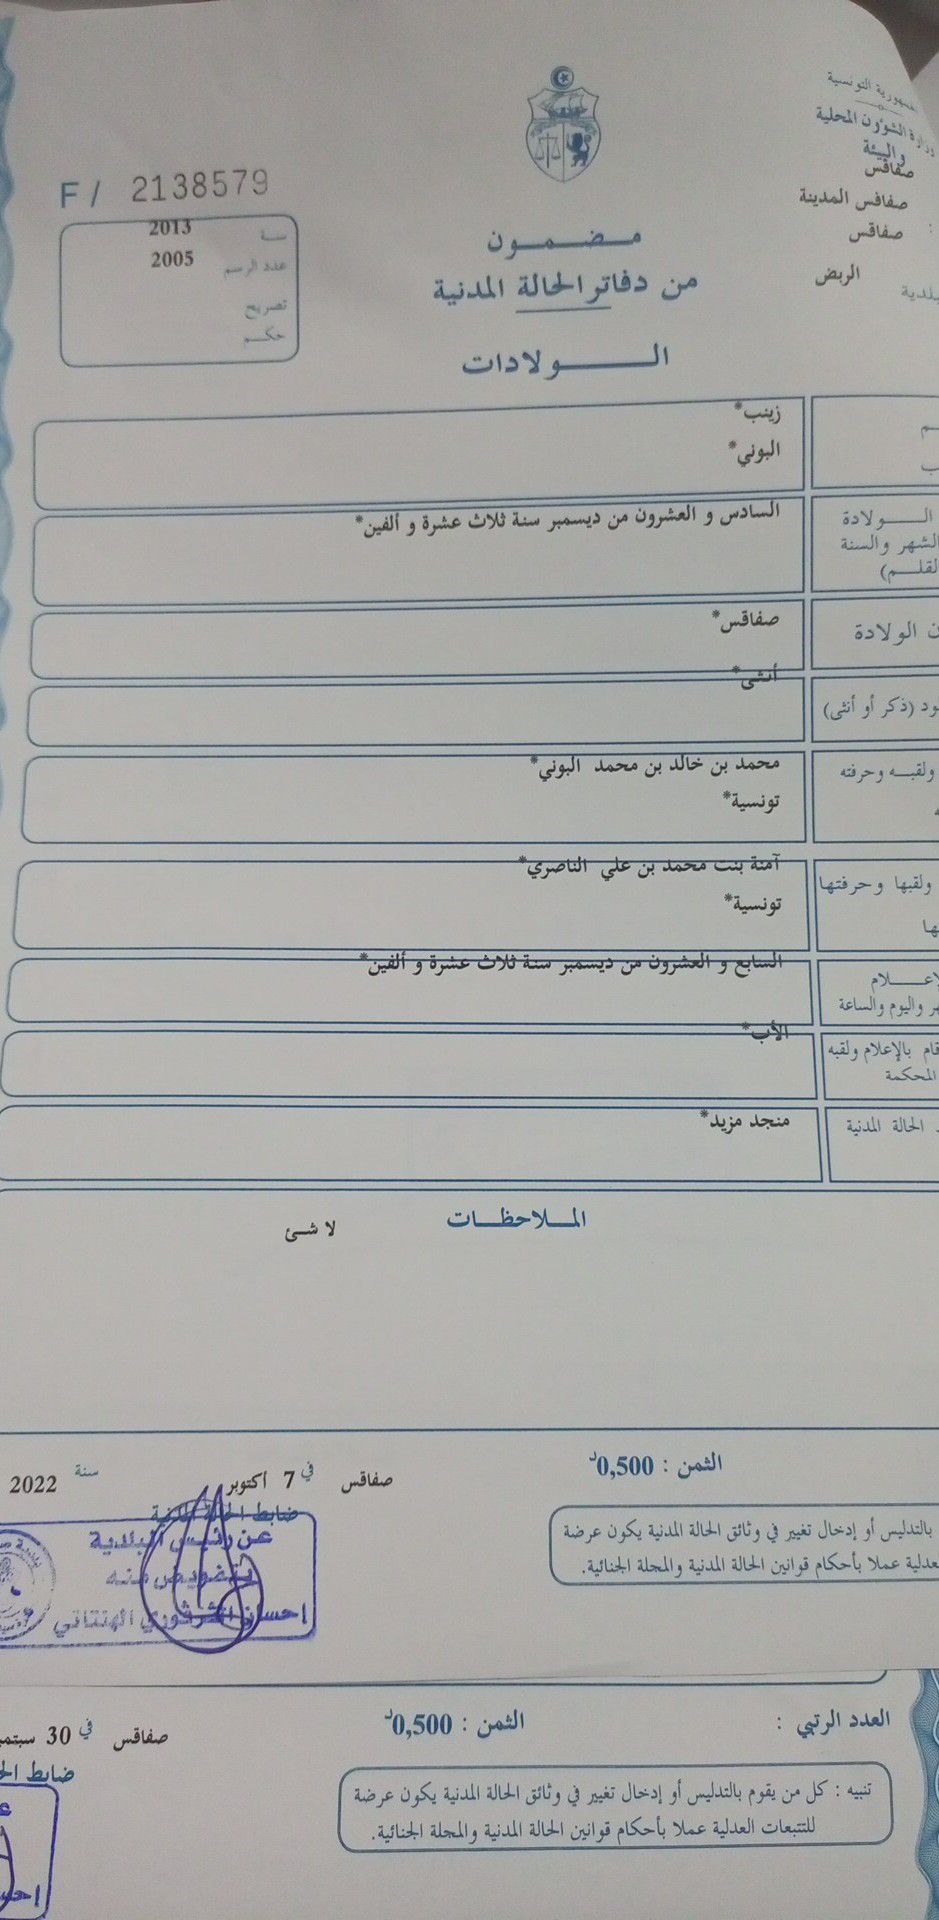 الجمهورية التونسية
وزارة الشؤون المحلية
والبيئة
صفاقس
صفاقس المدينة
: صفاقس
بلدية الربض
F / 2138579
سنة 2013
عدد الرسم 2005
تصريح
حكم
مضمون
من دفاتر الحالة المدنية
الولادات
زينب*
البوني*
الولادة
الشهر والسنة
القلم)
السادس و العشرون من ديسمبر سنة ثلاث عشرة و ألفين*
الولادة
صفاقس*
(ذكر أو أنثى)
أنثى*
ولقبه وحرفته
محمد بن خالد بن محمد البوني*
تونسية*
ولقبها وحرفتها
آمنة بنت محمد بن علي الناصري*
تونسية*
واليوم والساعة
السابع و العشرون من ديسمبر سنة ثلاث عشرة و ألفين*
بالإعلام ولقبه
المحكمة
الأب*
الحالة المدنية
منجد مزيد*
الملاحظات
لا شئ
الثمن : 0,500د
صفاقس في 7 أكتوبر سنة 2022
ضابط الحالة المدنية
عن رئيس البلدية
بتفويض منه
إحسان الهنتاتي
بالتدليس أو إدخال تغيير في وثائق الحالة المدنية يكون عرضة
العدلية عملا بأحكام قوانين الحالة المدنية والمجلة الجنائية.
العدد الرتبي :
الثمن : 0,500د
صفاقس في 30 سبتم
ضابط الح
تنبيه : كل من يقوم بالتدليس أو إدخال تغيير في وثائق الحالة المدنية يكون عرضة
للتتبعات العدلية عملا بأحكام قوانين الحالة المدنية والمجلة الجنائية.